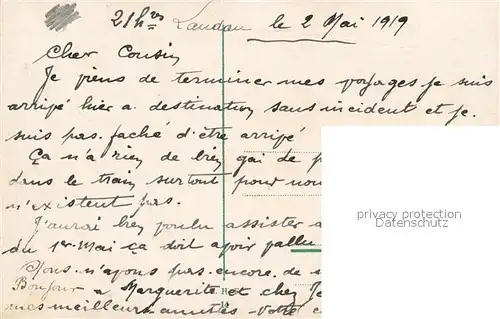 21 hres Landau le 2 Mai 1919
Cher Cousin
Je viens de terminer mes voyages je suis
arrivé hier a destination sans incident et je
suis pas faché d'être arrivé
Ça n'a rien de bien gai de
dans le train surtout pour
n'existent pas.
J'aurai bien voulu assister
du 1er Mai ça doit avoir
privacy protection
Nous n'avons pas encore de
Bonjour a Marguerite et chez
mes meilleurs amitiés votre